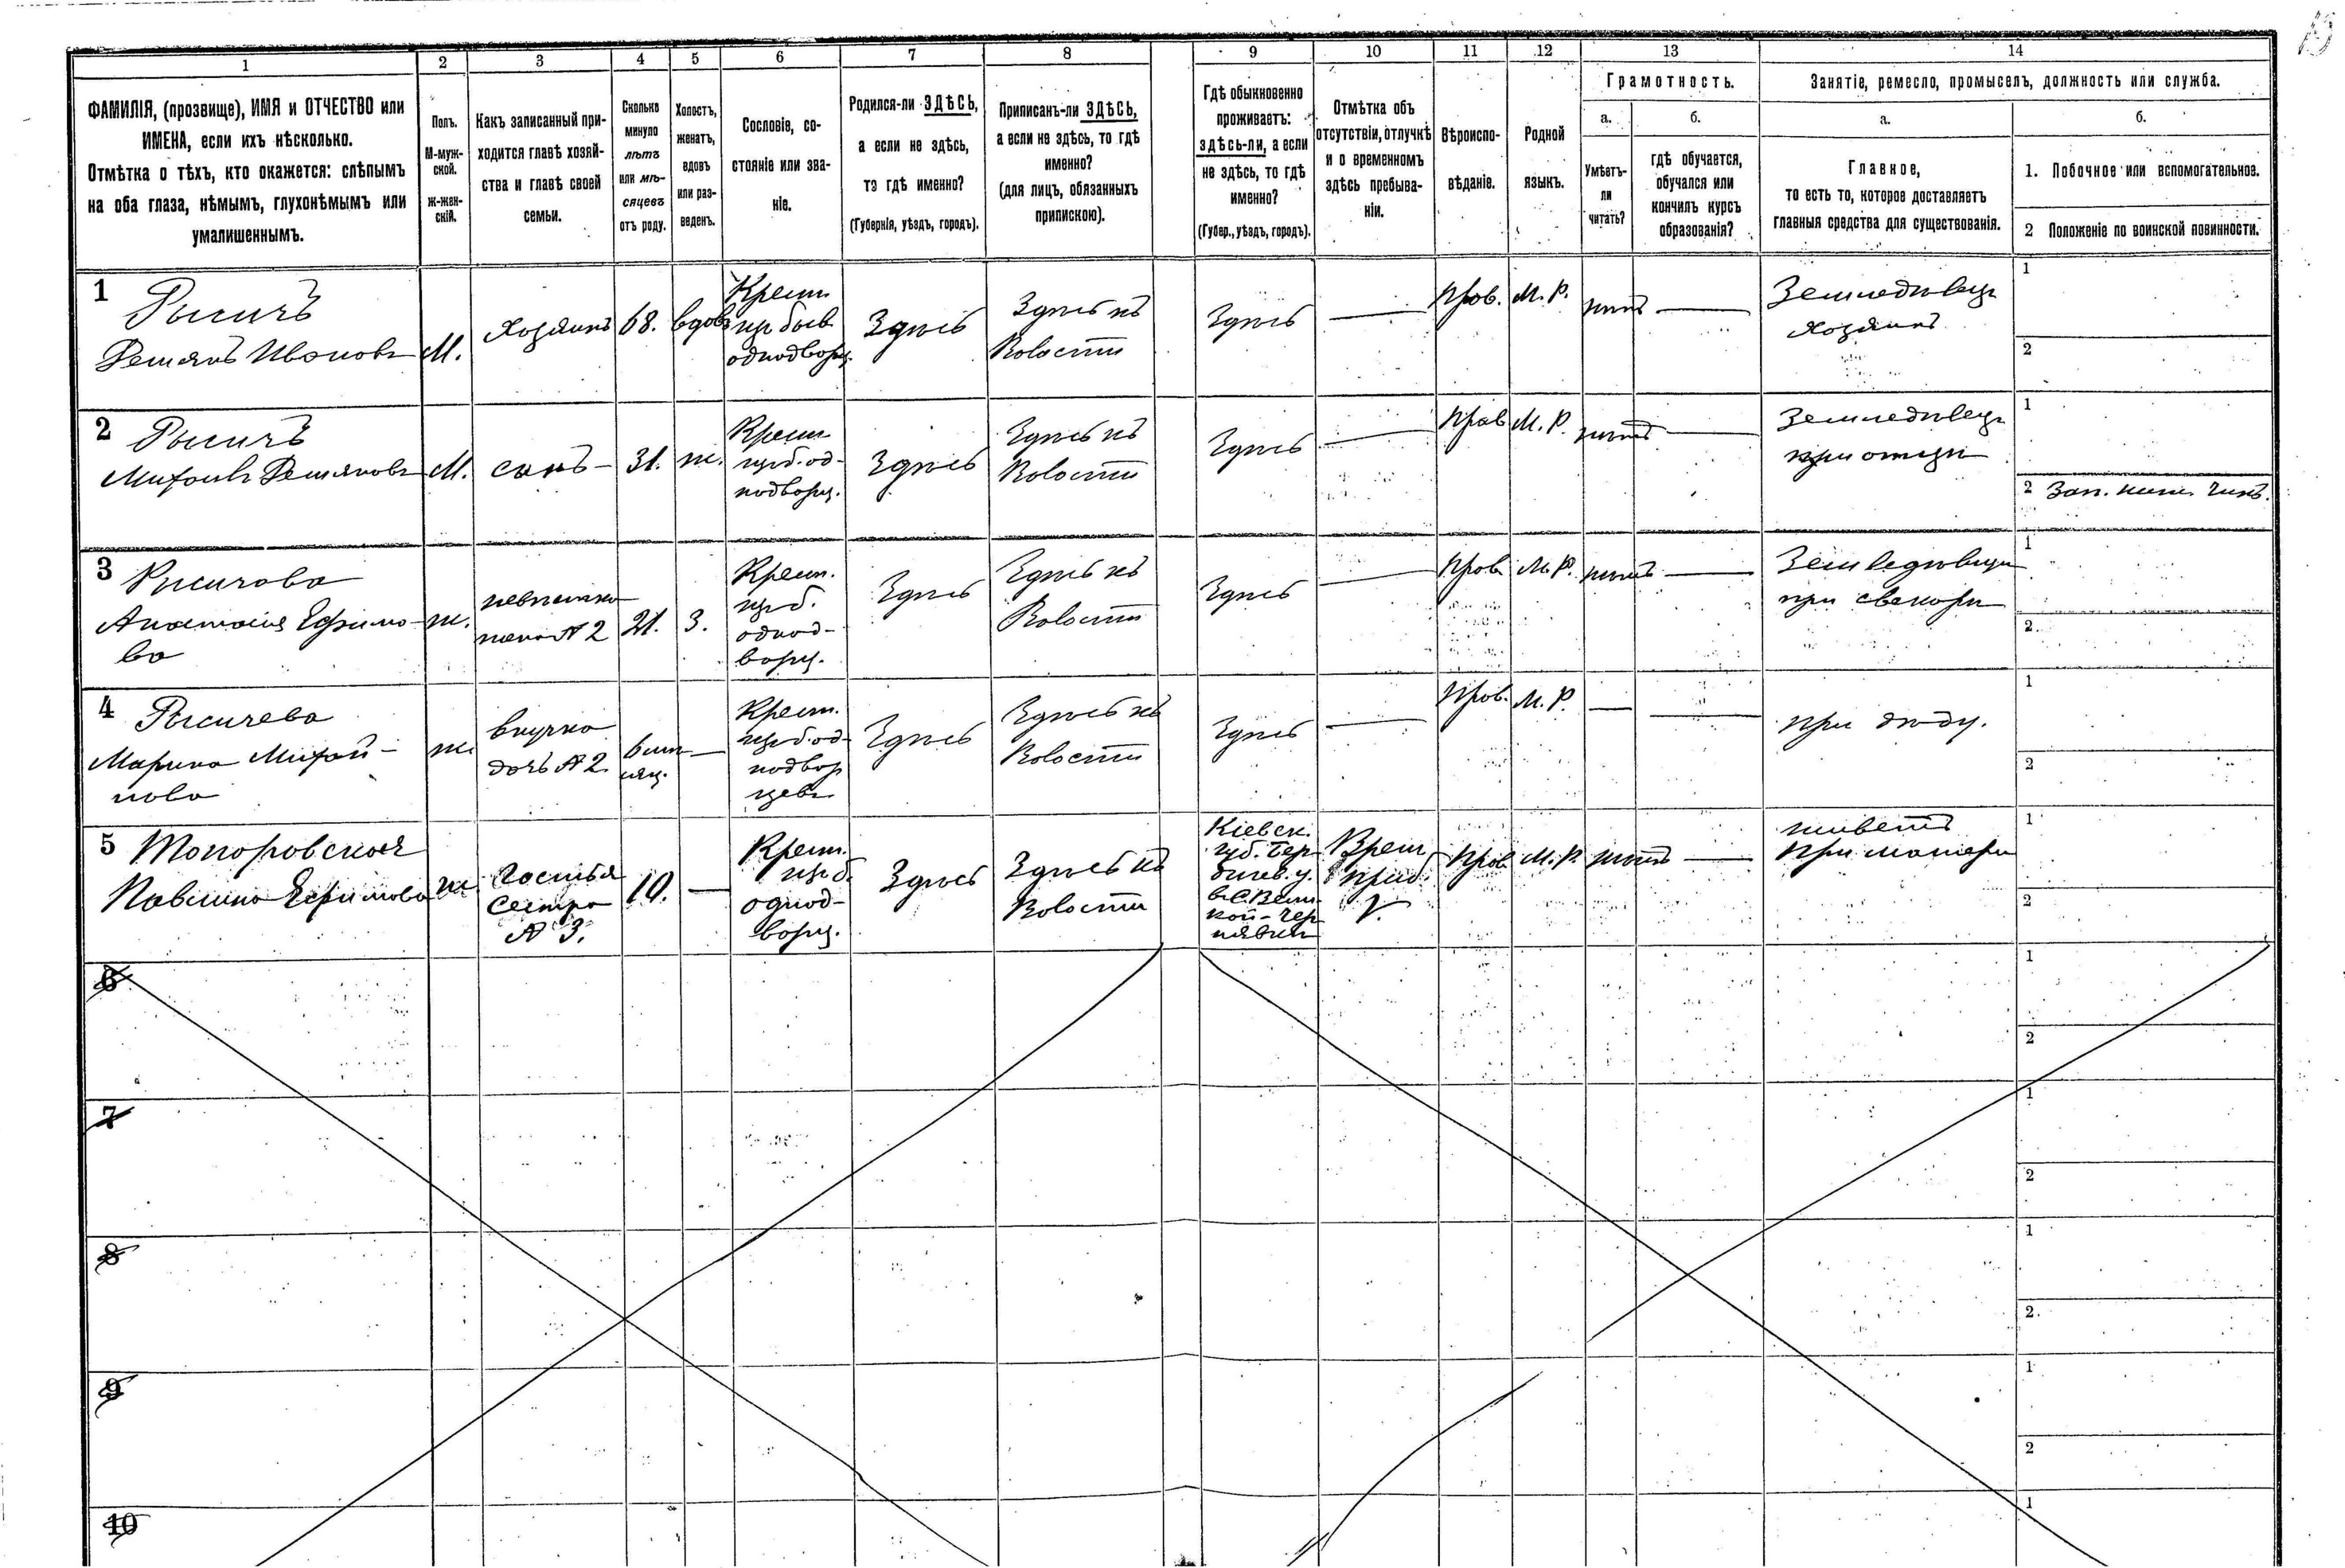 1 2 3 4 5 6 7 8 9 10 11 12 13 14
ФАМИЛІЯ, (прозвище), ИМЯ и ОТЧЕСТВО или
ИМЕНА, если ихъ нѣсколько.
Отмѣтка о тѣхъ, кто окажется: слѣпымъ
на оба глаза, нѣмымъ, глухонѣмымъ или
умалишеннымъ.
Полъ.
М-муж-
ской.
ж-жен-
скій.
Какъ записанный при-
ходится главѣ хозяй-
ства и главѣ своей
семьи.
Сколько
минуло
лѣтъ
или мѣ-
сяцевъ
отъ роду.
Холостъ,
женатъ,
вдовъ
или раз-
веденъ.
Сословіе, со-
стояніе или зва-
ніе.
Родился-ли ЗДѢСЬ,
а если не здѣсь,
то гдѣ именно?
(Губернія, уѣздъ, городъ).
Приписанъ-ли ЗДѢСЬ,
а если не здѣсь, то гдѣ
именно?
(для лицъ, обязанныхъ
припискою).
Гдѣ обыкновенно
проживаетъ:
здѣсь-ли, а если
не здѣсь, то гдѣ
именно?
(Губер., уѣздъ, городъ).
Отмѣтка объ
отсутствіи, отлучкѣ
и о временномъ
здѣсь пребыва-
ніи.
Вѣроиспо-
вѣданіе.
Родной
языкъ.
Грамотность.
а.
Умѣетъ-
ли
читать?
б.
гдѣ обучается,
обучался или
кончилъ курсъ
образованія?
Занятіе, ремесло, промыселъ, должность или служба.
а.
Главное,
то есть то, которое доставляетъ
главныя средства для существованія.
б.
1. Побочное или вспомогательное.
2 Положеніе по воинской повинности.
1
Иванов
М.
Хозяинъ
68.
вдовъ
Крест.
из быв.
однодворц.
Здѣсь
Здѣсь въ
Волости
Здѣсь
Прав.
М. Р.
нѣтъ
Земледѣлец
хозяинъ
1
2
2
М.
сынъ
31.
ж.
Крест.
из б. од-
нодворц.
Здѣсь
Здѣсь въ
Волости
Здѣсь
Прав
М. Р.
нѣтъ
Земледѣлец
при отцѣ
1
2 Зап. ниж. Чинъ.
3
Анастасія Ефимо-
ва
ж.
невѣстка
жена № 2
21.
З.
Крест.
из б.
однод-
ворц.
Здѣсь
Здѣсь въ
Волости
Здѣсь
Прав
М. Р.
нѣтъ
Земледѣлец
при свекорѣ
1
2.
4
Марина Михай-
лова
ж.
внучка
дочь № 2
6 мѣ
сяц.
Крест.
из б. од-
нодвор
цев
Здѣсь
Здѣсь въ
Волости
Здѣсь
Прав.
М. Р.
при дѣду.
1
2
5 Топоровская
Павлина Ефимова
ж
Гостья
Сестра
№ 3.
10.
Крест.
из б.
однод-
ворц.
Здѣсь
Здѣсь въ
Волости
Кіевск.
губ. Бер-
дичев. у.
Врем
приб.
Прав
М. Р.
нѣтъ
живетъ
При матери
1
2
6
1
2
7
1
2
8
1
2.
9
1
2
10
1